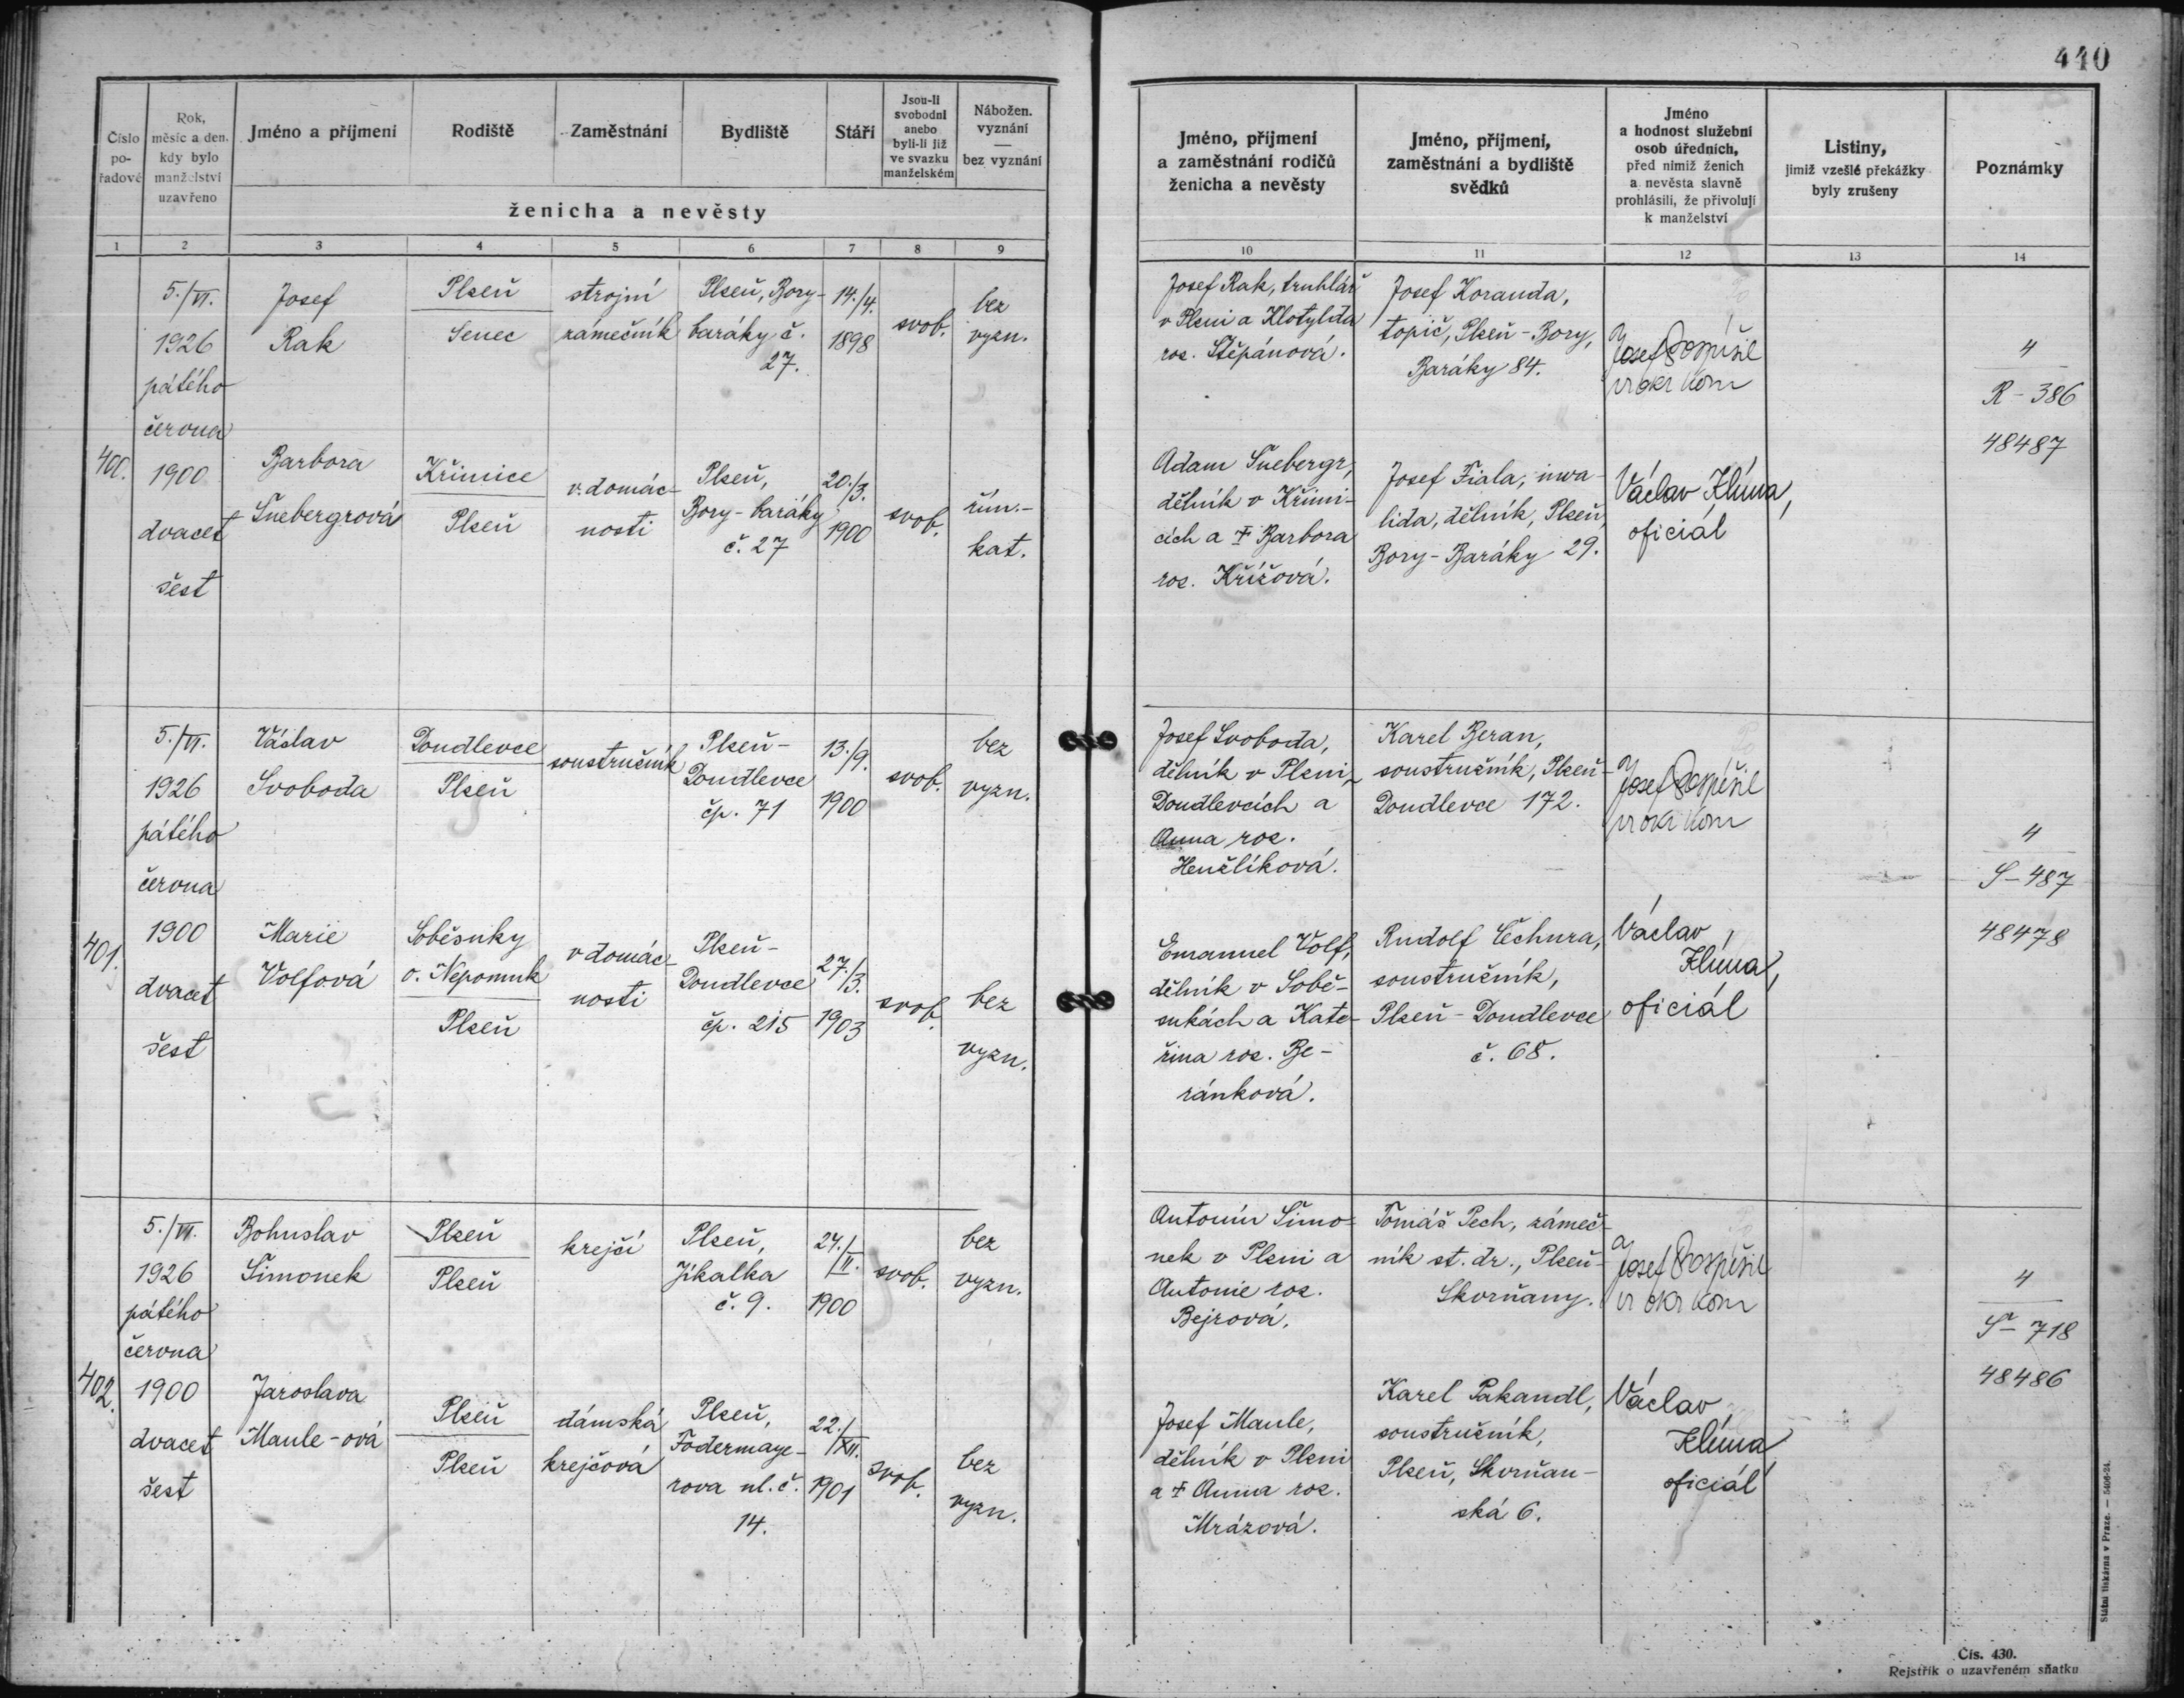 440
Číslo pořadové
Rok, měsíc a den, kdy bylo manželství uzavřeno
Jméno a příjmení
Rodiště
Zaměstnání
Bydliště
Stáří
Jsou-li svobodni anebo byli-li již ve svazku manželském
Nábožen. vyznání — bez vyznání
ženicha a nevěsty
Jméno, příjmení a zaměstnání rodičů ženicha a nevěsty
Jméno, příjmení, zaměstnání a bydliště svědků
Jméno a hodnost služební osob úředních, před nimiž ženich a nevěsta slavně prohlásili, že přivolují k manželství
Listiny, jimiž vzešlé překážky byly zrušeny
Poznámky
1 2 3 4 5 6 7 8 9 10 11 12 13 14
400.
5./VI.
1926
pátého
června
1900
dvacet
šest
Josef
Rak
Plzeň
Senec
strojní
zámečník
Plzeň, Bory-
baráky č.
27.
14./4.
1898
svob.
bez
vyzn.
Josef Rak, truhlář
v Plzni a Klotylda
roz. Štěpánová.
Josef Koranda,
topič, Plzeň-Bory,
Baráky 84.
Josef Pospíšil
4
R-386
48487
Barbora
Šnebergrová
Křimice
Plzeň
v domác-
nosti
Plzeň,
Bory-baráky
č. 27
20./3.
1900
svob.
řím.-
kat.
Adam Šnebergr,
dělník v Křimi-
cích a † Barbora
roz. Křížová.
Josef Fiala, inva-
lida, dělník, Plzeň,
Bory-Baráky 29.
Václav Klůna,
oficiál
401.
5./VI.
1926
pátého
června
1900
dvacet
šest
Václav
Svoboda
Doudlevce
Plzeň
soustružník
Plzeň-
Doudlevce
čp. 71
13./9.
1900
svob.
bez
vyzn.
Josef Svoboda,
dělník v Plzni,
Doudlevcích a
Anna roz.
Henžlíková.
Karel Beran,
soustružník, Plzeň-
Doudlevce 172.
Josef Pospíšil
4
S-487
48478
Marie
Volfová
Soběsuky
o. Nepomuk
Plzeň
v domác-
nosti
Plzeň-
Doudlevce
čp. 215
27./3.
1903
svob.
bez
vyzn.
Emanuel Volf,
dělník v Sobě-
sukách a Kate-
řina roz. Be-
ránková.
Rudolf Čechura,
soustružník,
Plzeň-Doudlevce
č. 68.
Václav
Klůna,
oficiál
402.
5./VI.
1926
pátého
června
1900
dvacet
šest
Bohuslav
Šimonek
Plzeň
Plzeň
krejčí
Plzeň,
Jikalka
č. 9.
24./II.
1900
svob.
bez
vyzn.
Antonín Šimo-
nek v Plzni a
Antonie roz.
Bejrová.
Tomáš Pech, zámeč-
ník st. dr., Plzeň-
Skvrňany.
Josef Pospíšil
4
Š-718
48486
Jaroslava
Maule-ová
Plzeň
Plzeň
dámská
krejčová
Plzeň,
Fodermaye-
rova ul. č.
14.
22./XII.
1901
svob.
bez
vyzn.
Josef Maule,
dělník v Plzni
a † Anna roz.
Mrázová.
Karel Pakandl,
soustružník,
Plzeň, Skvrňan-
ská 6.
Václav
Klůna
oficiál
Státní tiskárna v Praze. — 5406-24.
Čís. 430.
Rejstřík o uzavřeném sňatku